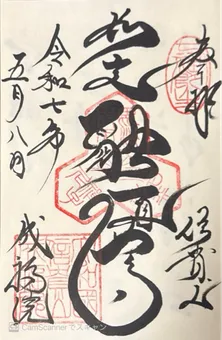 奉拝
信貴山
如意融通尊
令和七年
五月八日
成福院
CamScannerでスキャン